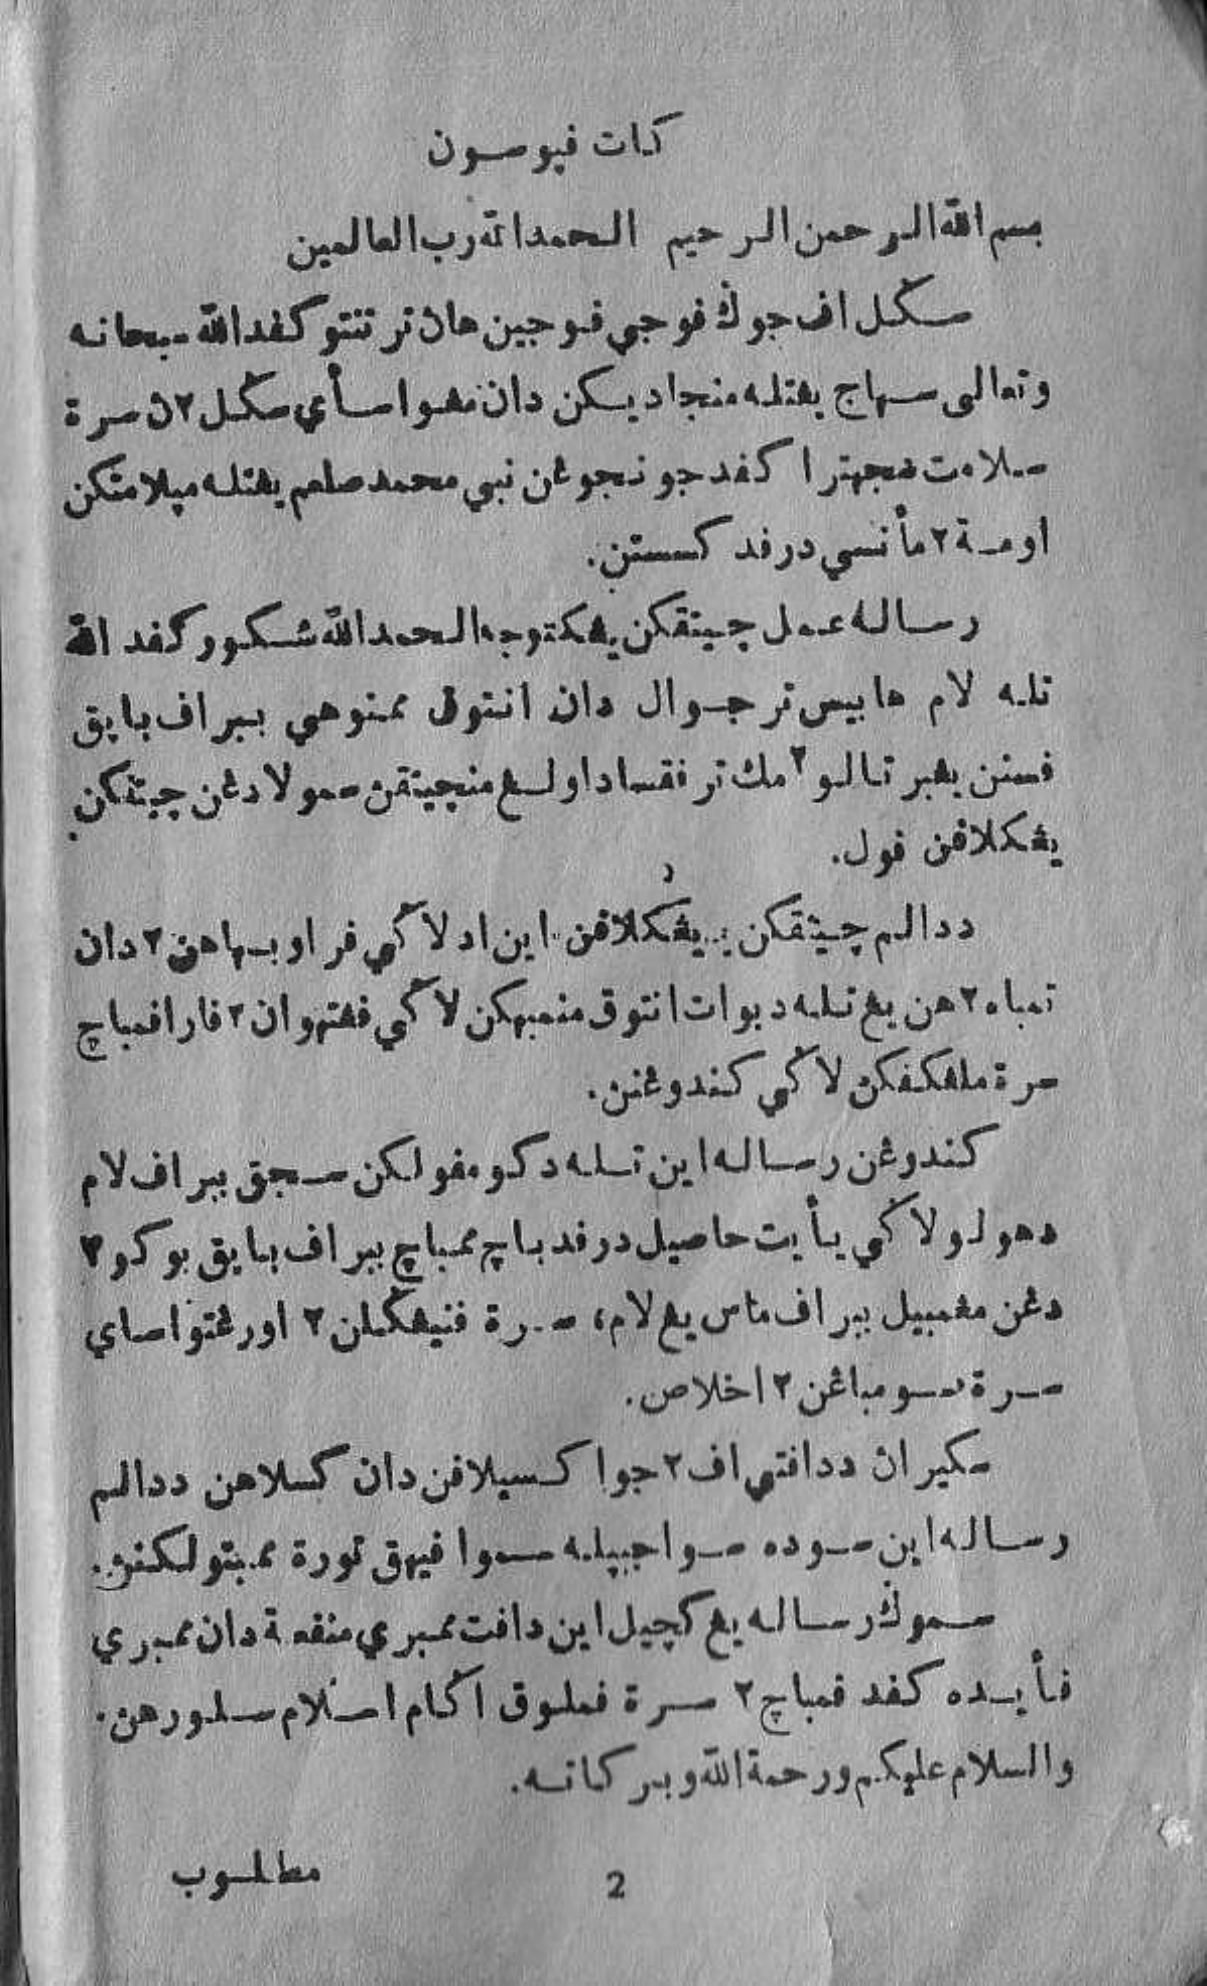 کات ڤڽوسون
بسم الله الرحمن الرحيم الحمد الله رب العالمين
سݢل اف جوݢ ڤوجي ڤوجين هاڽ ترتنتو کڤد الله سبحانه
وتعالى سهاج يڠتله منجاديکن دان مڠواسأي سݢل٢ڽ سرة
سلامت سجهترا کڤد جونجوڠن نبي محمد صلعم يڠتله مڽلامتکن
اومة٢ مأنسي درڤد کسستن.
رساله عمل چيتقکن يڠکتوجه الحمد الله شکور کڤد الله
تله لام هابيس ترجوال دان انتوق ممنوهي ببراف باڽق
ڤسنن يڠبرتالو٢ مك ترڤقسا داولڠ منچيتقن سمولا دڠن چيتقکن
يڠکلاڤن ڤول.
ددالم چيتقکن يڠکلاڤن اين اد لاݢي ڤراوبهاهن٢ دان
تمباه٢هن يڠ تله دبوات انتوق منمبهکن لاݢي ڤڠتهوان٢ ڤارا ڤمباچ
سرة ملڠکڤکن لاݢي کندوڠنن.
کندوڠن رساله اين تله دکومڤولکن سجق ببراف لام
دهولو لاݢي يأيت حاصيل درڤد باچ ممباچ ببراف باڽق بوکو٢
دڠن مڠمبيل ببراف ماس يڠ لام، سرة ڤنيڠݢلن٢ اورڠتوا سأي
سرة سومباڠن٢ اخلاص.
سکيراڽ ددافتي اف٢ جوا کسيلاڤن دان کسلاهن ددالم
رساله اين سوده سواجبڽله سموا ڤيهق تورة ممبتولکنڽ.
سموݢ رساله يڠ کچيل اين داڤت ممبري منفعة دان ممبري
فأيده کڤد ڤمباچ٢ سرة ڤملوق اݢام اسلام سلورهن.
والسلام عليکم ورحمة الله وبرکاته.
مطلوب
2